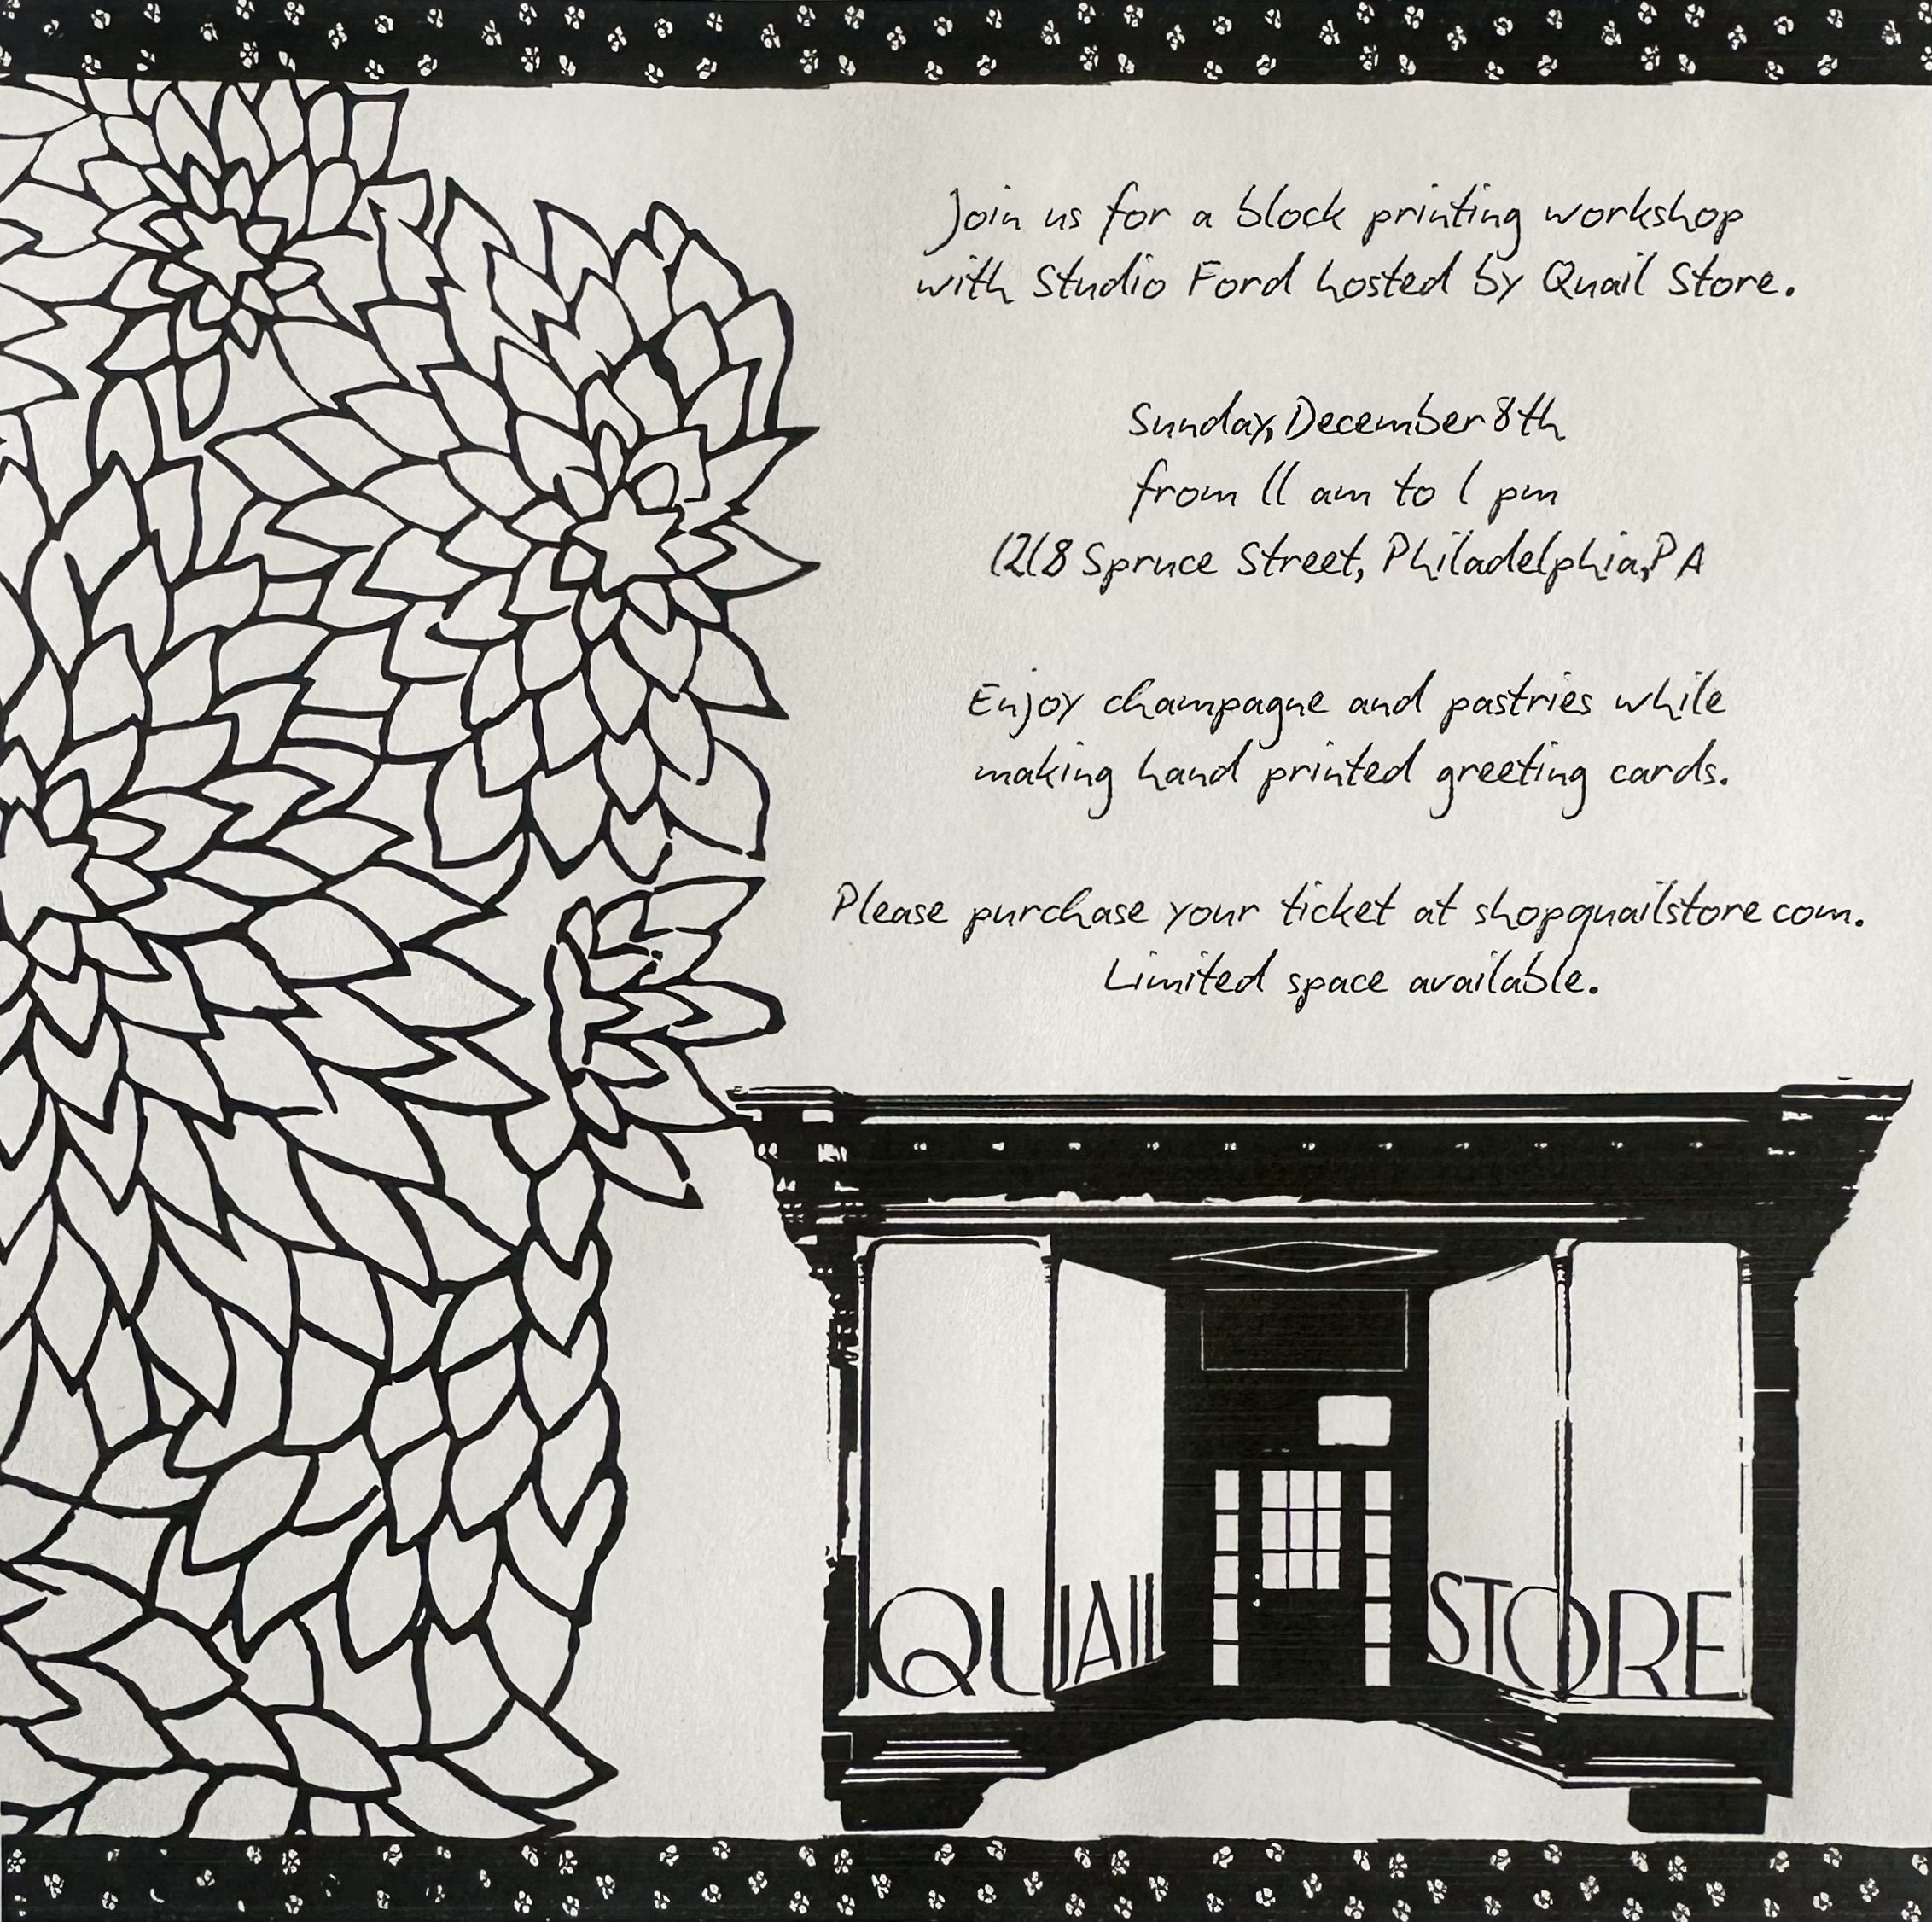 Join us for a block printing workshop
with Studio Ford hosted by Quail Store.
Sunday, December 8th
from 11 am to 1 pm
1218 Spruce Street, Philadelphia, PA
Enjoy champagne and pastries while
making hand printed greeting cards.
Please purchase your ticket at shopquailstore com.
Limited space available.
QUAIL STORE